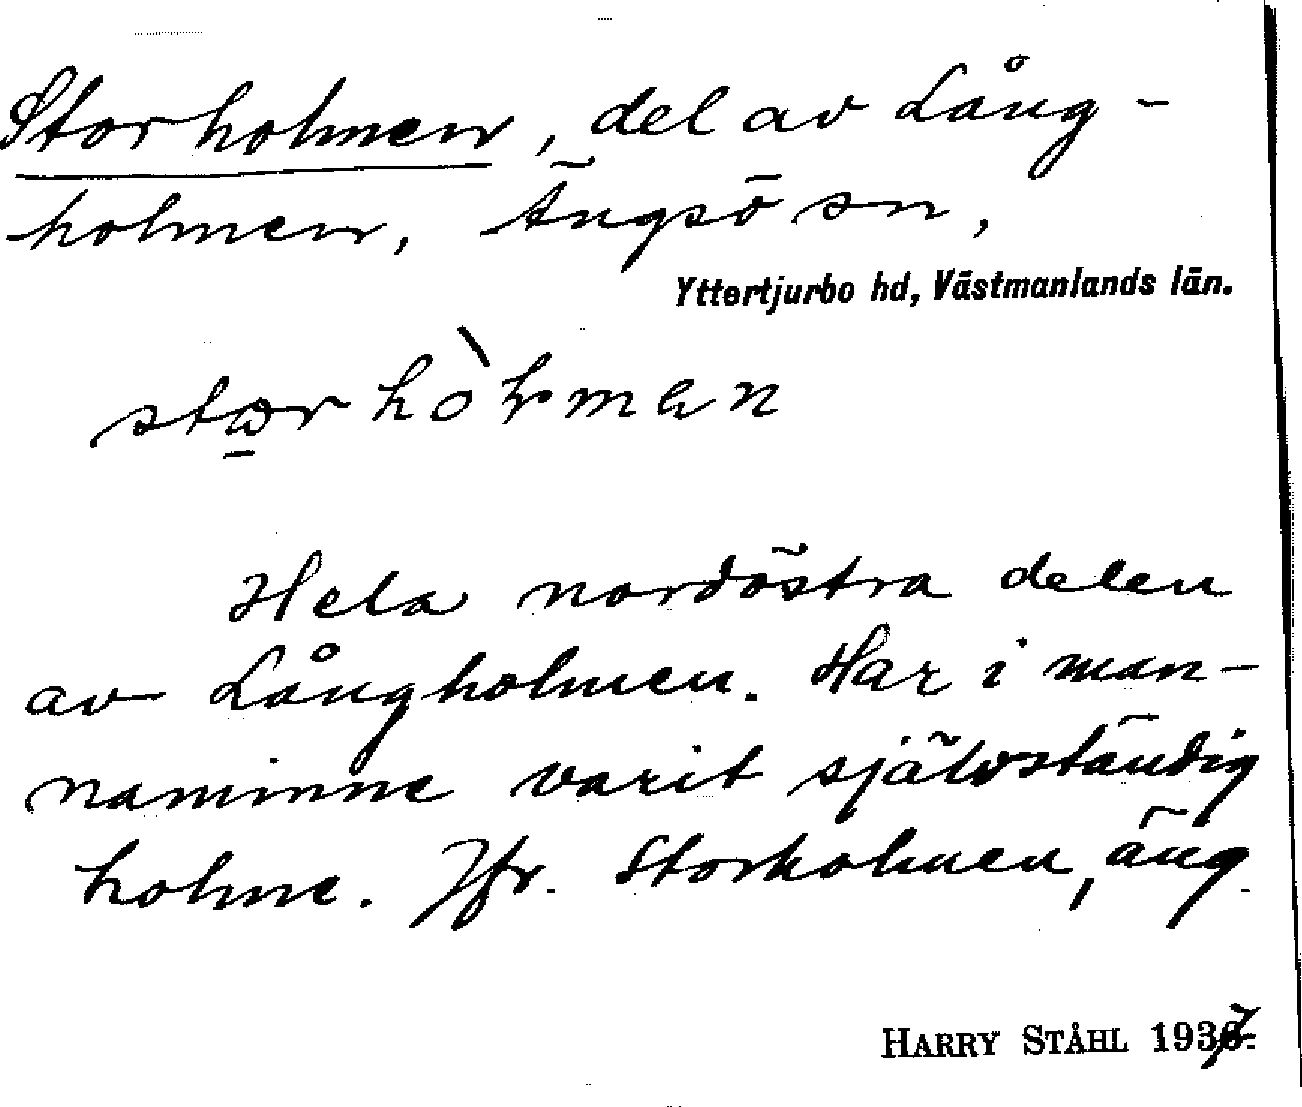 Storholmen, del av Lång-
holmen, Ängsö sn,
Yttertjurbo hd, Västmanlands län.
storhòlman
Hela nordöstra delen
av Långholmen. Har i man-
naminne varit självständig
holme. Jfr. Storholmen, äng
HARRY STÅHL 1937.